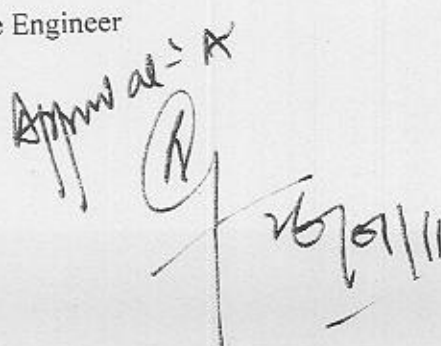 e Engineer
Approval - A
26/01/11